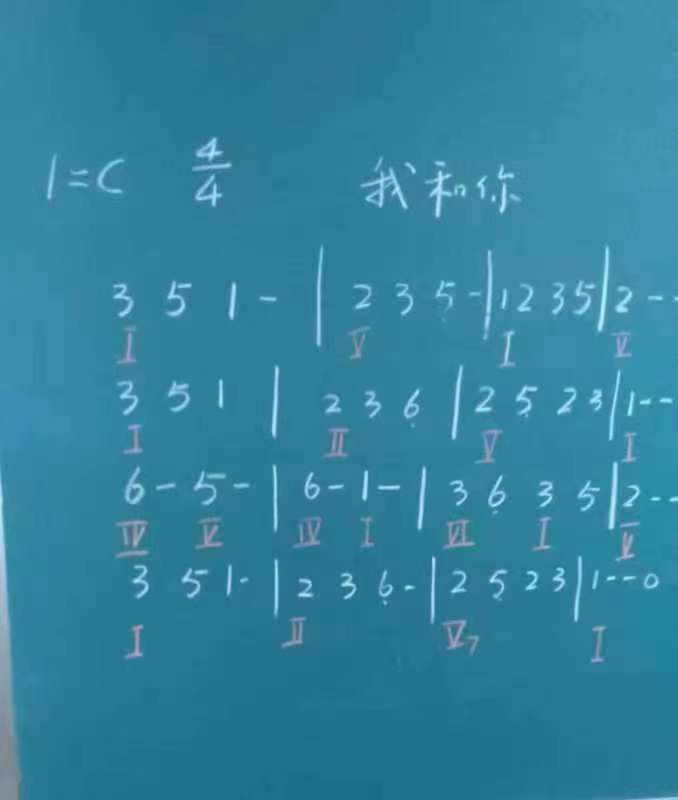 1=C 4/4 我和你
3 5 1 - | 2 3 5̣ - | 1 2 3 5 | 2 - -
I V I V
3 5 1 | 2 3 6̣ | 2 5̣ 2 3 | 1 - -
I II V I
6 - 5 - | 6 - 1 - | 3 6̣ 3 5 | 2 - -
IV V IV I VI I V
3 5 1 - | 2 3 6̣ - | 2 5̣ 2 3 | 1 - - 0
I II V7 I